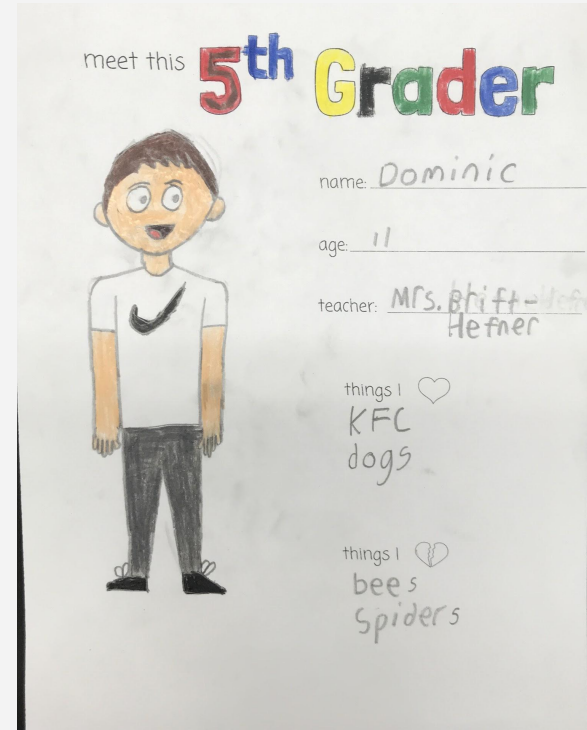 meet this 5th Grader
name: Dominic
age: 11
teacher: Mrs. Brift-
Hefner
things I
KFC
dogs
things I
bees
Spiders